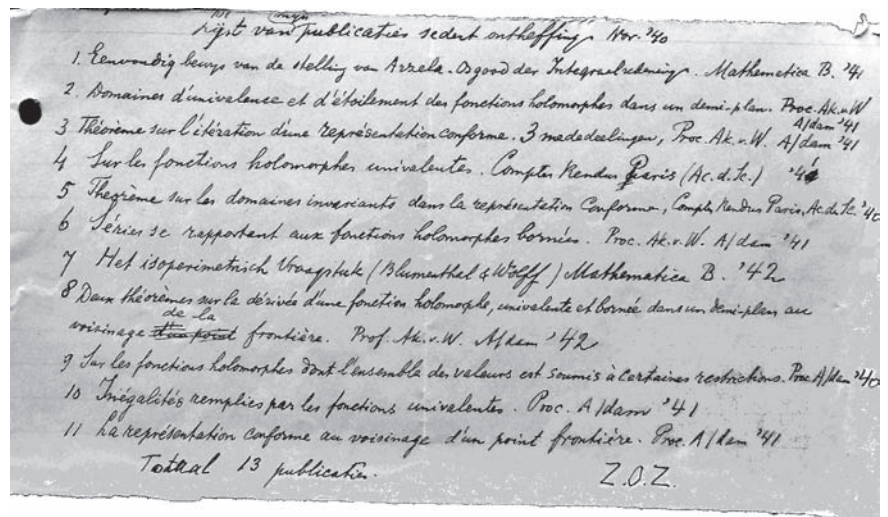 mijn
Lijst van publicaties sedert ontheffing Nov. '40
1. Eenvoudig bewijs van de stelling van Arzela-Osgood der Integraalrekening. Mathematica B. '41
2. Domaines d'univalence et d'étoilement des fonctions holomorphes dans un demi-plan. Proc. Ak. v. W
A/dam '41
3 Théorème sur l'itération d'une représentation conforme. 3 mededeelingen, Proc. Ak. v. W. A/dam '41
4 Sur les fonctions holomorphes univalentes. Comptes Rendus Paris (Ac. d. Sc.)
5 Theorème sur les domaines invariants dans la représentation Conforme, Comptes Rendus Paris, Ac. de Sc. '40
6 Séries se rapportant aux fonctions holomorphes bornées. Proc. Ak. v. W. A/dam '41
7 Het isoperimetrisch Vraagstuk (Blumenthal & Wolff) Mathematica B. '42
8 Deux théorèmes sur la dérivée d'une fonction holomorphe, univalente et bornée dans un demi-plan au
de la
voisinage d'un point frontière. Prof. Ak. v. W. A/dam '42
9 Sur les fonctions holomorphes dont l'ensemble des valeurs est soumis à certaines restrictions. Proc A/dam '40
10 Inégalités remplies par les fonctions univalentes. Proc. A/dam '41
11 La représentation conforme au voisinage d'un point frontière. Proc. A/dam '41
Totaal 13 publicaties.
Z.O.Z.